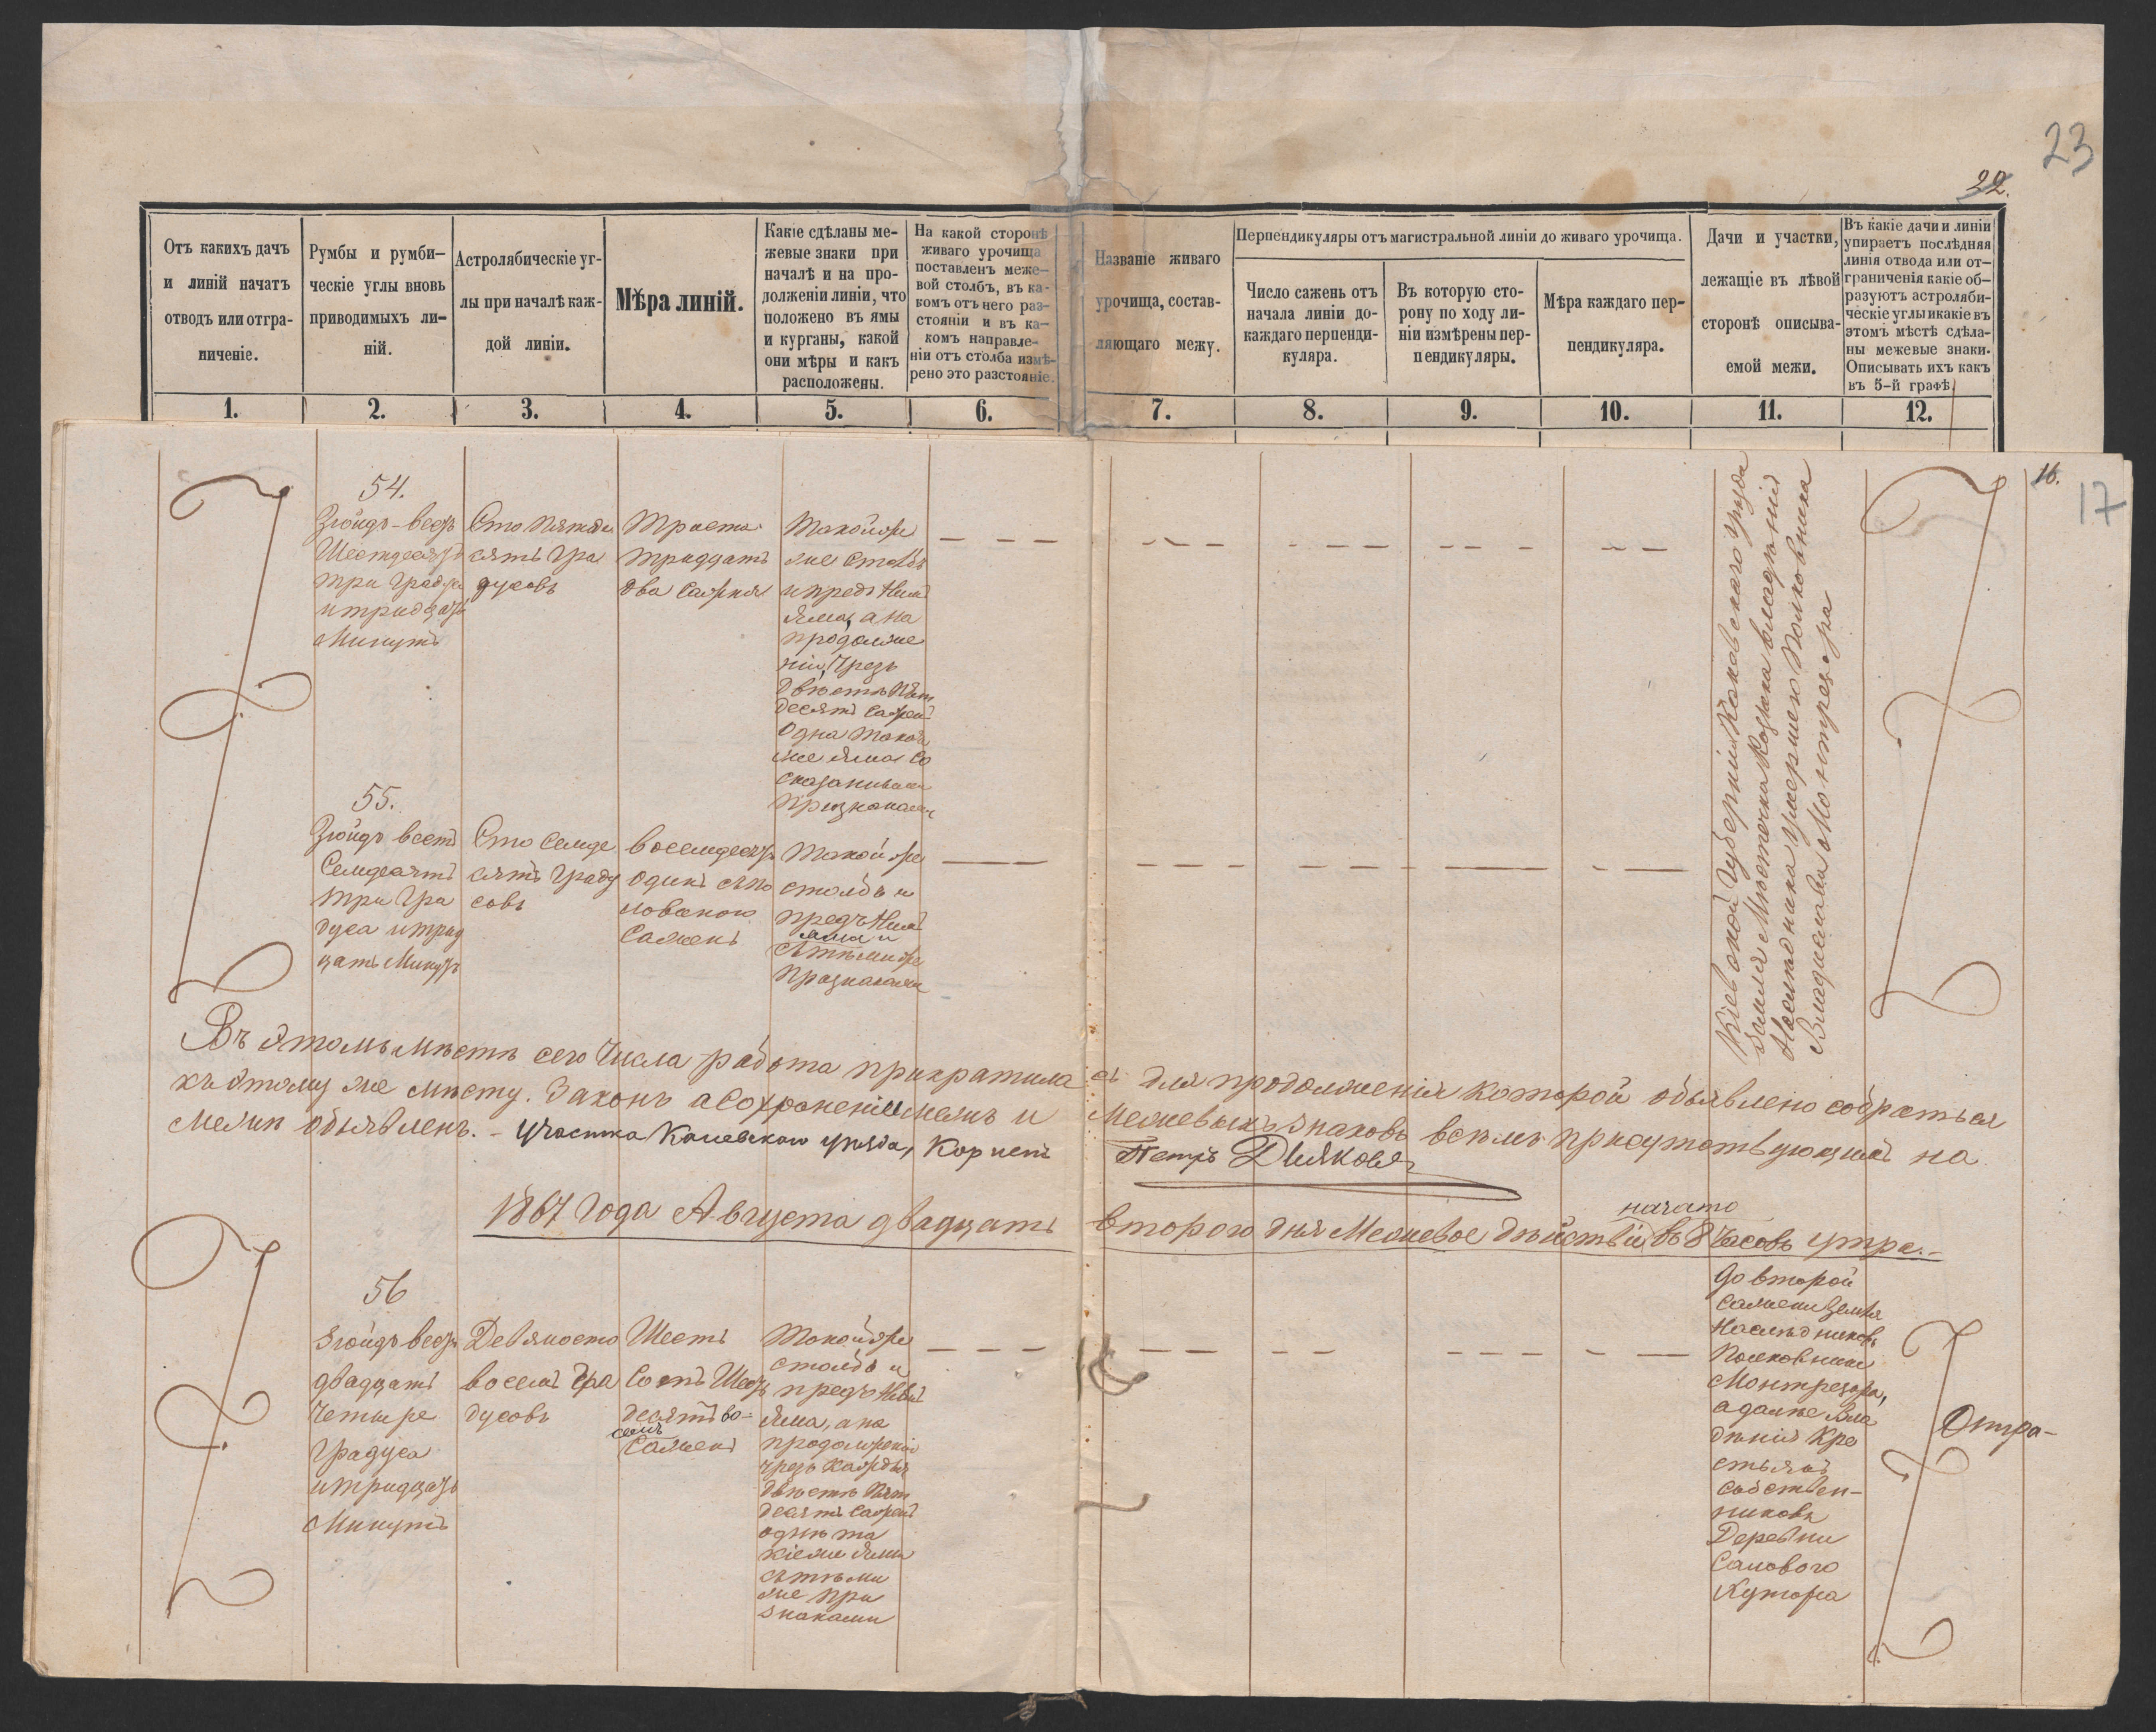 23
22.
Отъ какихъ дачъ
и линій начатъ
отводъ или отгра-
ниченіе.
Румбы и румби-
ческіе углы вновь
приводимыхъ ли-
ній.
Астролябическіе уг-
лы при началѣ каж-
дой линіи.
Мѣра линій.
Какіе сдѣланы ме-
жевые знаки при
началѣ и на про-
долженіи линіи, что
положено въ ямы
и курганы, какой
они мѣры и какъ
расположены.
На какой сторонѣ
живаго урочища
поставленъ меже-
вой столбъ, въ ка-
комъ отъ него раз-
стояніи и въ ка-
комъ направле-
ніи отъ столба измѣ-
рено это разстояніе.
Названіе живаго
урочища, состав-
ляющаго межу.
Перпендикуляры отъ магистральной линіи до живаго урочища.
Число сажень отъ
начала линіи до-
каждаго перпенди-
куляра.
Въ которую сто-
рону по ходу ли-
ніи измѣрены пер-
пендикуляры.
Мѣра каждаго пер-
пендикуляра.
Дачи и участки,
лежащіе въ лѣвой
сторонѣ описыва-
емой межи.
Въ какіе дачи и линіи
упираетъ послѣдняя
линія отвода или от-
граниченія какіе об-
разуютъ астроляби-
ческіе углы и какіе въ
этомъ мѣстѣ сдѣла-
ны межевые знаки.
Описывать ихъ какъ
въ 5-й графѣ.
1. 2. 3. 4. 5. 6. 7. 8. 9. 10. 11. 12.
16.
17
54.
Зюйдъ-вестъ
Шестдесятъ
три градуса
и тридцать
Минутъ
Сто пятьде
сятъ гра
дусовъ
Триста
тридцать
два сажня
Такой же
же столбъ
и предъ ним
яма, а на
продолже
ніи, чрезъ
двѣстѣ пят
десятъ сажен
Одна такая
же яма со
сказанными
признаками
Кіевской Губерніи Каневскаго уѣзда
Земля Мѣстечка Козина владѣнія
Наслѣдника умершего Полковника
Владислава Монтрезора
55.
Зюйдъ вестъ
Семдесятъ
три гра
дуса и трид
цать Минутъ
Сто семде
сятъ граду
совъ
восемдесятъ
одинъ съ по
ловиною
Саженъ
такой же
столбъ и
предъ ним
яма и
съ тѣми же
признаками
Въ этомъ мѣстѣ сего числа работа прикратилась для продолженія которой объявлено собраться
къ этому же мѣсту. Законъ о сохраненіи межъ и Межевыхъ знаковъ всѣмъ присутствующимъ на
межѣ объявленъ. - участка Каневскаго уѣзда, Корнетъ Петръ Дьяковъ
1867 года Августа двадцать второго дня Межевое дѣйствіе начато въ 8 часовъ утра.-
56
Зюйдъ вестъ
двадцать
четыре
градуса
и тридцать
Минутъ
Девяносто
восемъ гра
дусовъ
Шесть
сотъ Шесть
десятъ во-
семъ
Саженъ
Такой же
столбъ и
предъ ним
яма, а на
продолженіи
чрезъ каждыя
двѣстѣ пят
десятъ сажен
однѣ та
кіе же ямы
съ тѣми
же при
знаками
До второй
сажени Земля
Наслѣдниковъ
Полковника
Монтрезора,
а далѣе вла
дѣнія кре
стьянъ
собствен-
никовъ
Деревни
Самового
Хутора
Отгра-